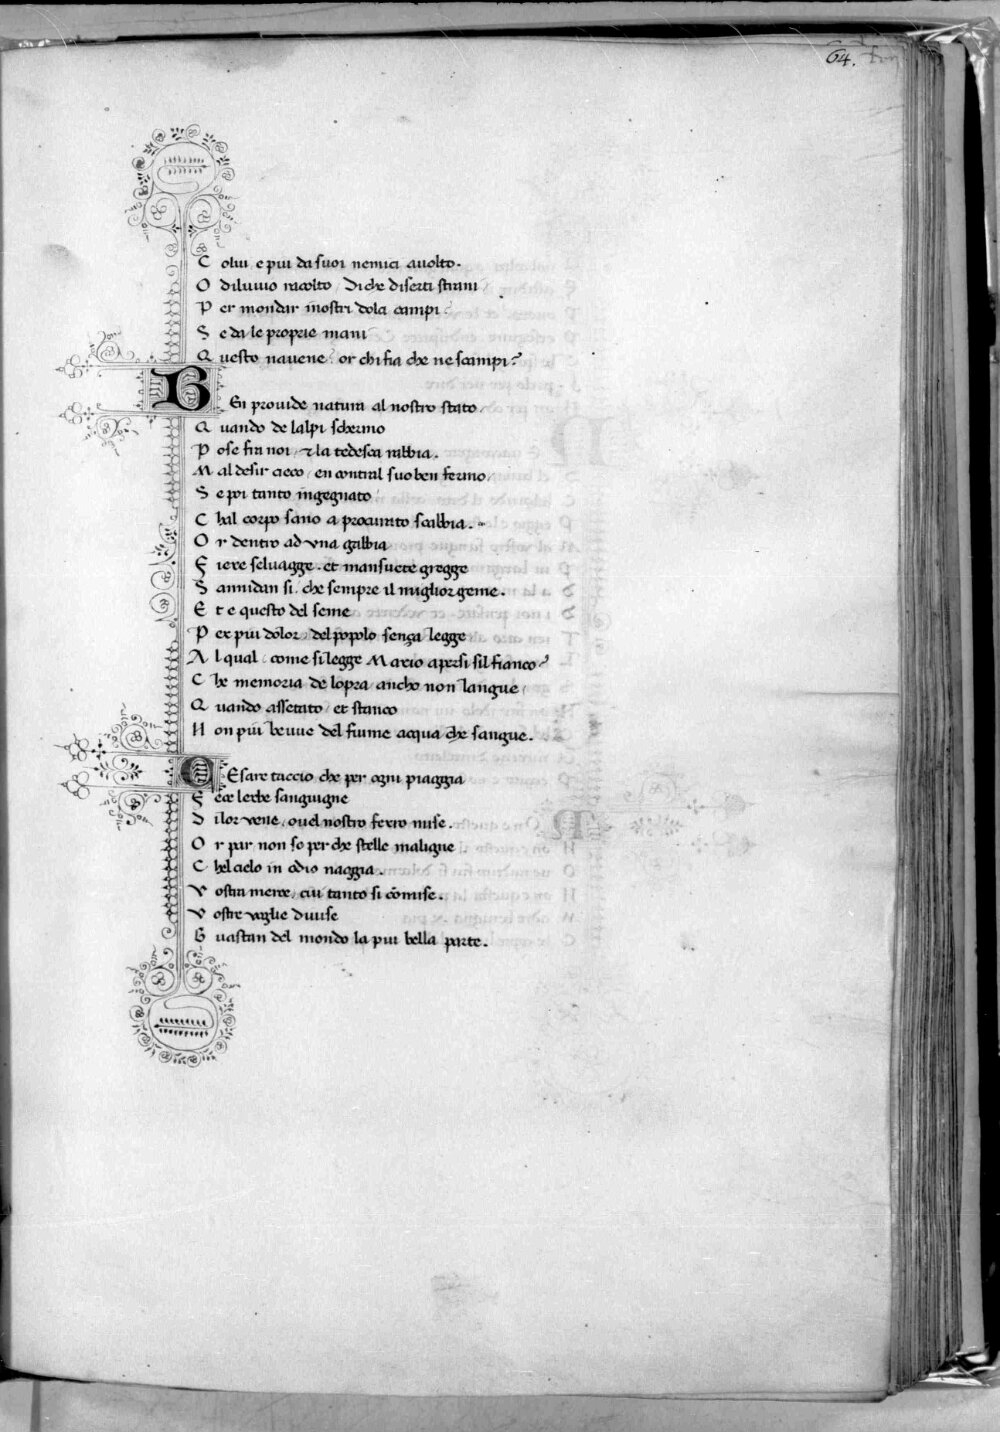 64.
Colui e piu da suoi nemici auolto.
O diluuio racolto / Di che diserti strani
Per mondar i nostri dolci campi?
Se da le proprie mani
Questo nauene? or chi fia che ne scampi?
Ben prouide natura al nostro stato.
Quando de lalpi schermo
Pose fra noi / & la tedesca rabbia.
Mal desir cieco / en contral suo ben fermo /
Se poi tanto ingegnato /
Chal corpo sano a procurato scabbia.
Or dentro ad vna gabbia
Fiere seluagge. et mansuete gregge
Sannidan si. che sempre il miglior geme.
Et e questo del seme
Per piu dolor / del popolo senza legge
Al qual / come si legge Mario apersi sil fianco?
Che memoria de lopra ancho non langue /
Quando assetato et stanco
Non piu beuue del fiume acqua che sangue.
Cesare taccio che per ogni piaggia
Fece lerbe sanguigne
Di lor vene / ouel nostro ferro mise.
Or par non so per che stelle maligne
Chel cielo in odio naggia.
Vostra merce / cui tanto si comise.
Vostre voglie diuise
Guastan del mondo la piu bella parte.